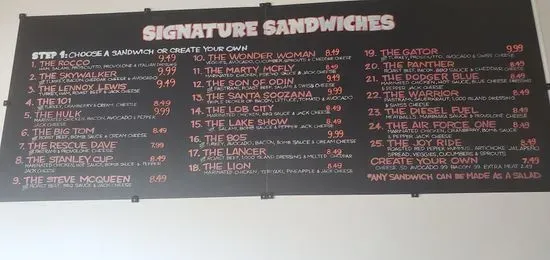 SIGNATURE SANDWICHES
STEP 1: CHOOSE A SANDWICH OR CREATE YOUR OWN
1. THE ROCCO 9.49
HAM, SALAMI, PROSCIUTTO, PROVOLONE & ITALIAN DRESSING
2. THE SKYWALKER 9.99
TURKEY, BACON, CHEDDAR CHEESE & AVOCADO
3. THE LENNOX LEWIS 9.49
TURKEY, HAM, ROAST BEEF & JACK CHEESE
4. THE 101 8.49
TURKEY, CRANBERRY & CREAM CHEESE
5. THE HULK 9.99
AVOCADO & PEPPER
6. THE BIG TOM 8.49
ROAST BEEF, BOMB SAUCE & CREAM CHEESE
7. THE RESCUE DAVE 7.99
PASTRAMI & PROVOLONE CHEESE
8. THE STANLEY CUP 8.49
MARINATED CHICKEN, BBQ SAUCE, BOMB SAUCE & PEPPER
JACK CHEESE
9. THE STEVE MCQUEEN 8.49
ROAST BEEF, BBQ SAUCE & JACK CHEESE
10. THE WONDER WOMAN 8.49
VEGGIES, AVOCADO, CUCUMBER, SPROUTS & CHEDDAR CHEESE
11. THE MARTY MCFLY 8.49
MARINATED CHICKEN, PESTO SAUCE & JACK CHEESE
12. THE SON OF ODIN 9.49
PASTRAMI, ROAST BEEF, SALAMI & SWISS CHEESE
13. THE SANTA SOOZANA 9.99
TRIPLE DECKER OF BACON, LETTUCE, TOMATO & AVOCADO
14. THE LOB CITY 8.49
MARINATED CHICKEN, BBQ SAUCE & JACK CHEESE
15. THE LAKE SHOW 8.49
SALAMI, BOMB SAUCE & PEPPER JACK CHEESE
16. THE 805 9.99
TURKEY, AVOCADO, BACON, BOMB SAUCE & CREAM CHEESE
17. THE LANCER 8.49
ROAST BEEF, 1,000 ISLAND DRESSING & MELTED CHEDDAR
18. THE LION 8.49
MARINATED CHICKEN, TERIYAKI, PINEAPPLE & JACK CHEESE
19. THE GATOR 9.99
TURKEY, PROSCIUTTO, AVOCADO & SWISS CHEESE
20. THE PANTHER 8.49
ROAST BEEF, BACON, BBQ SAUCE & CHEDDAR CHEESE
21. THE DODGER BLUE 8.49
MARINATED CHICKEN, HOT SAUCE, BLUE CHEESE DRESSING
& PEPPER JACK CHEESE
22. THE WARRIOR 8.49
PASTRAMI, SAUERKRAUT, 1,000 ISLAND DRESSING
& SWISS CHEESE
23. THE DIESEL FUEL 8.49
MEATBALLS, MARINARA SAUCE & PROVOLONE CHEESE
24. THE AIR FORCE ONE 8.49
MARINATED CHICKEN, CRANBERRY, BOMB SAUCE
& PEPPER JACK CHEESE
25. THE JOY RIDE 8.49
ROASTED RED PEPPER HUMMUS, ARTICHOKE, JALAPEÑO
SPREAD, VEGGIES, CUCUMBERS & SPROUTS
CREATE YOUR OWN 7.49
CHEESE .50 AVOCADO .99 BACON .99 EXTRA MEAT 2.49
*ANY SANDWICH CAN BE MADE AS A SALAD